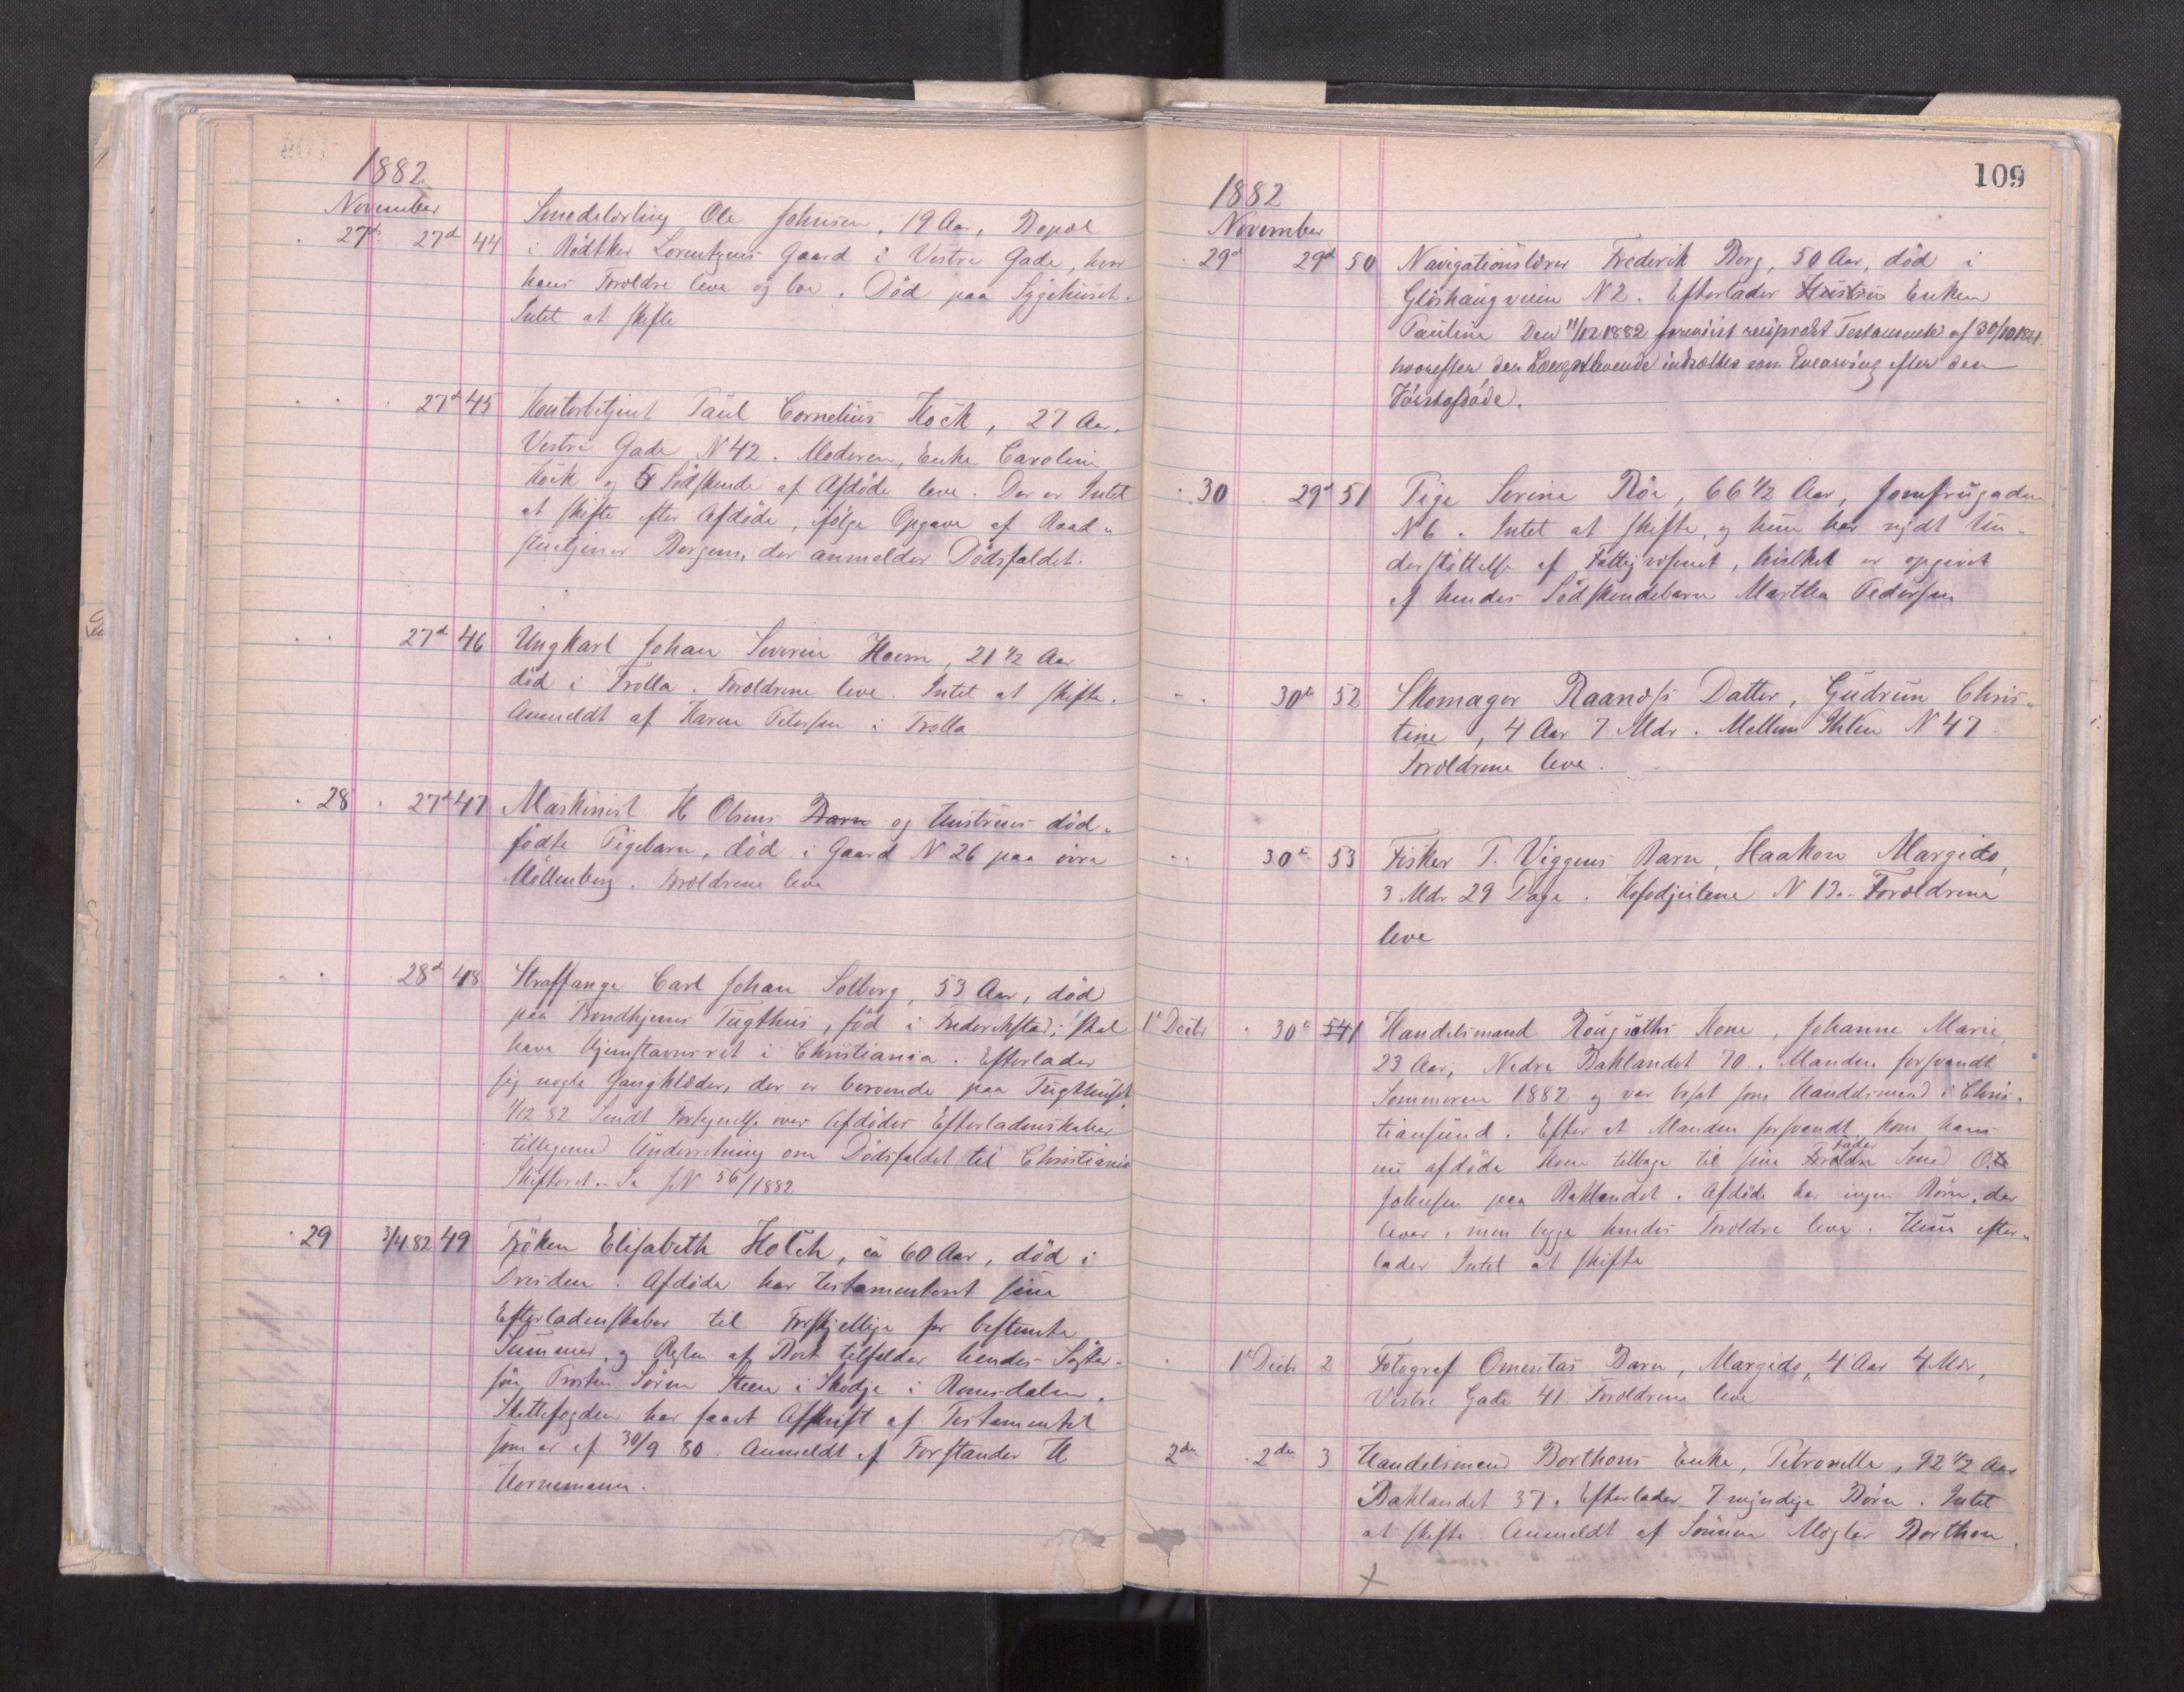 1882
November
27d 27d 44 Smedelærling Ole Johnsen, 19 Aar, Bopæl
i Bødtker Lorentzens Gaard i Vestre Gade, hvor
hans Forældre leve og boe. Død paa Sygehuset.
Intet at skifte
27d 45 Kontorbetjent Paul Cornelius Kock, 27 Aar,
Vestre Gade N 42. Moderen, Enke Caroline
Kock og 5 Södskende af Afdöde leve. Der er Intet
at skifte efter Afdöde, ifölge Opgave af Raad-
stuetjener Bergum, der anmelder Dödsfaldet.
27d 46 Ungkarl Johan Severin Hoem, 21 1/2 Aar
död i Trolla. Forældrene leve. Intet at skifte.
Anmeldt af Karen Petersen i Trolla
28 27d 47 Maskinist H Olsens Barn og Hustrues död-
födte Pigebarn, död i Gaard N 26 paa övre
Möllenberg. Forældrene leve
28d 48 Straffange Carl Johan Solberg, 53 Aar, död
paa Trondhjems Tugthus, föd i Frederikstad; skal
have Hjemstavnsret i Christiania. Efterlader
sig nogle Gangklæder, der er beroende paa Tugthuset.
1/12 82 Sendt Fortegnelse over Afdödes Efterladenskaber
tilligemed Underretning om Dödsfaldet til Christiania
Skifteret. Sa JN 56/1882
29 3/4.82 49 Fröken Elisabeth Holck, ca 60 Aar, död i
Dresden. Afdöde har testamenteret sine
Efterladenskaber til Forskjellige for bestemte
Summer, og Resten af Boet tilfalder hendes Söster-
sön Provsten Sören Steen i Skodje i Romsdalen.
Skiftefogden har faaet Afskrift af Testamentet
som er af 30/9 80. Anmeldt af Forstander H
Hornemann.
109
1882
November
29d 29d 50 Navigationslærer Frederik Berg, 50 Aar, död i
Glöshaugveien N 2. Efterlader Hustrue Enken
Pauline Den 11/12 1882 forevist reciprokt Testamente af 30/10 1821.
hvorefter den Længstlevende indsættes som Enearving efter den
Förstafdöde.
30 29d 51 Pige Serine Röe, 66 1/2 Aar, Jomfrugaden
N 6. Intet at skifte, og hun har nydt Un-
derstöttelse af Fattigvæsenet, hvilket er opgivet
af hendes Södskendebarn Martha Pedersen
30te 52 Skomager Raanæs's Datter, Gudrun Chris-
tine, 4 Aar 7 Mdr. Mellem Ihlen N 47.
Forældrene leve.
30te 53 Fisker P. Viggens Barn, Haakon Margido,
3 Mdr 29 Dage. N 13. Forældrene
leve
1te Decbr 30te 54 1 Handelsmand Rougsæths Kone, Johanne Marie,
23 Aar, Nedre Baklandet 70. Manden forsvandt
Sommeren 1882 og var bosat som Handelsmand i Chris-
tiansund. Efter at Manden forsvandt, kom hans
nu afdöde Kone tilbage til sine Forældre Fader Smed O.
Johnsen paa Baklandet. Afdöde har ingen Börn, der
lever, men begge hendes Forældre leve. Hun efter-
lader Intet at skifte
1te Decbr 2 Fotograf Omentas Barn, Margido, 4 Aar 4 Mdr,
Vestre Gade 41. Forældrene leve
2den 2den 3 Handelsmand Borthens Enke, Petronelle, 92 1/2 Aar
Baklandet 37. Efterlader 7 myndige Börn. Intet
at skifte. Anmeldt af Sönnen Mægler Borthen.